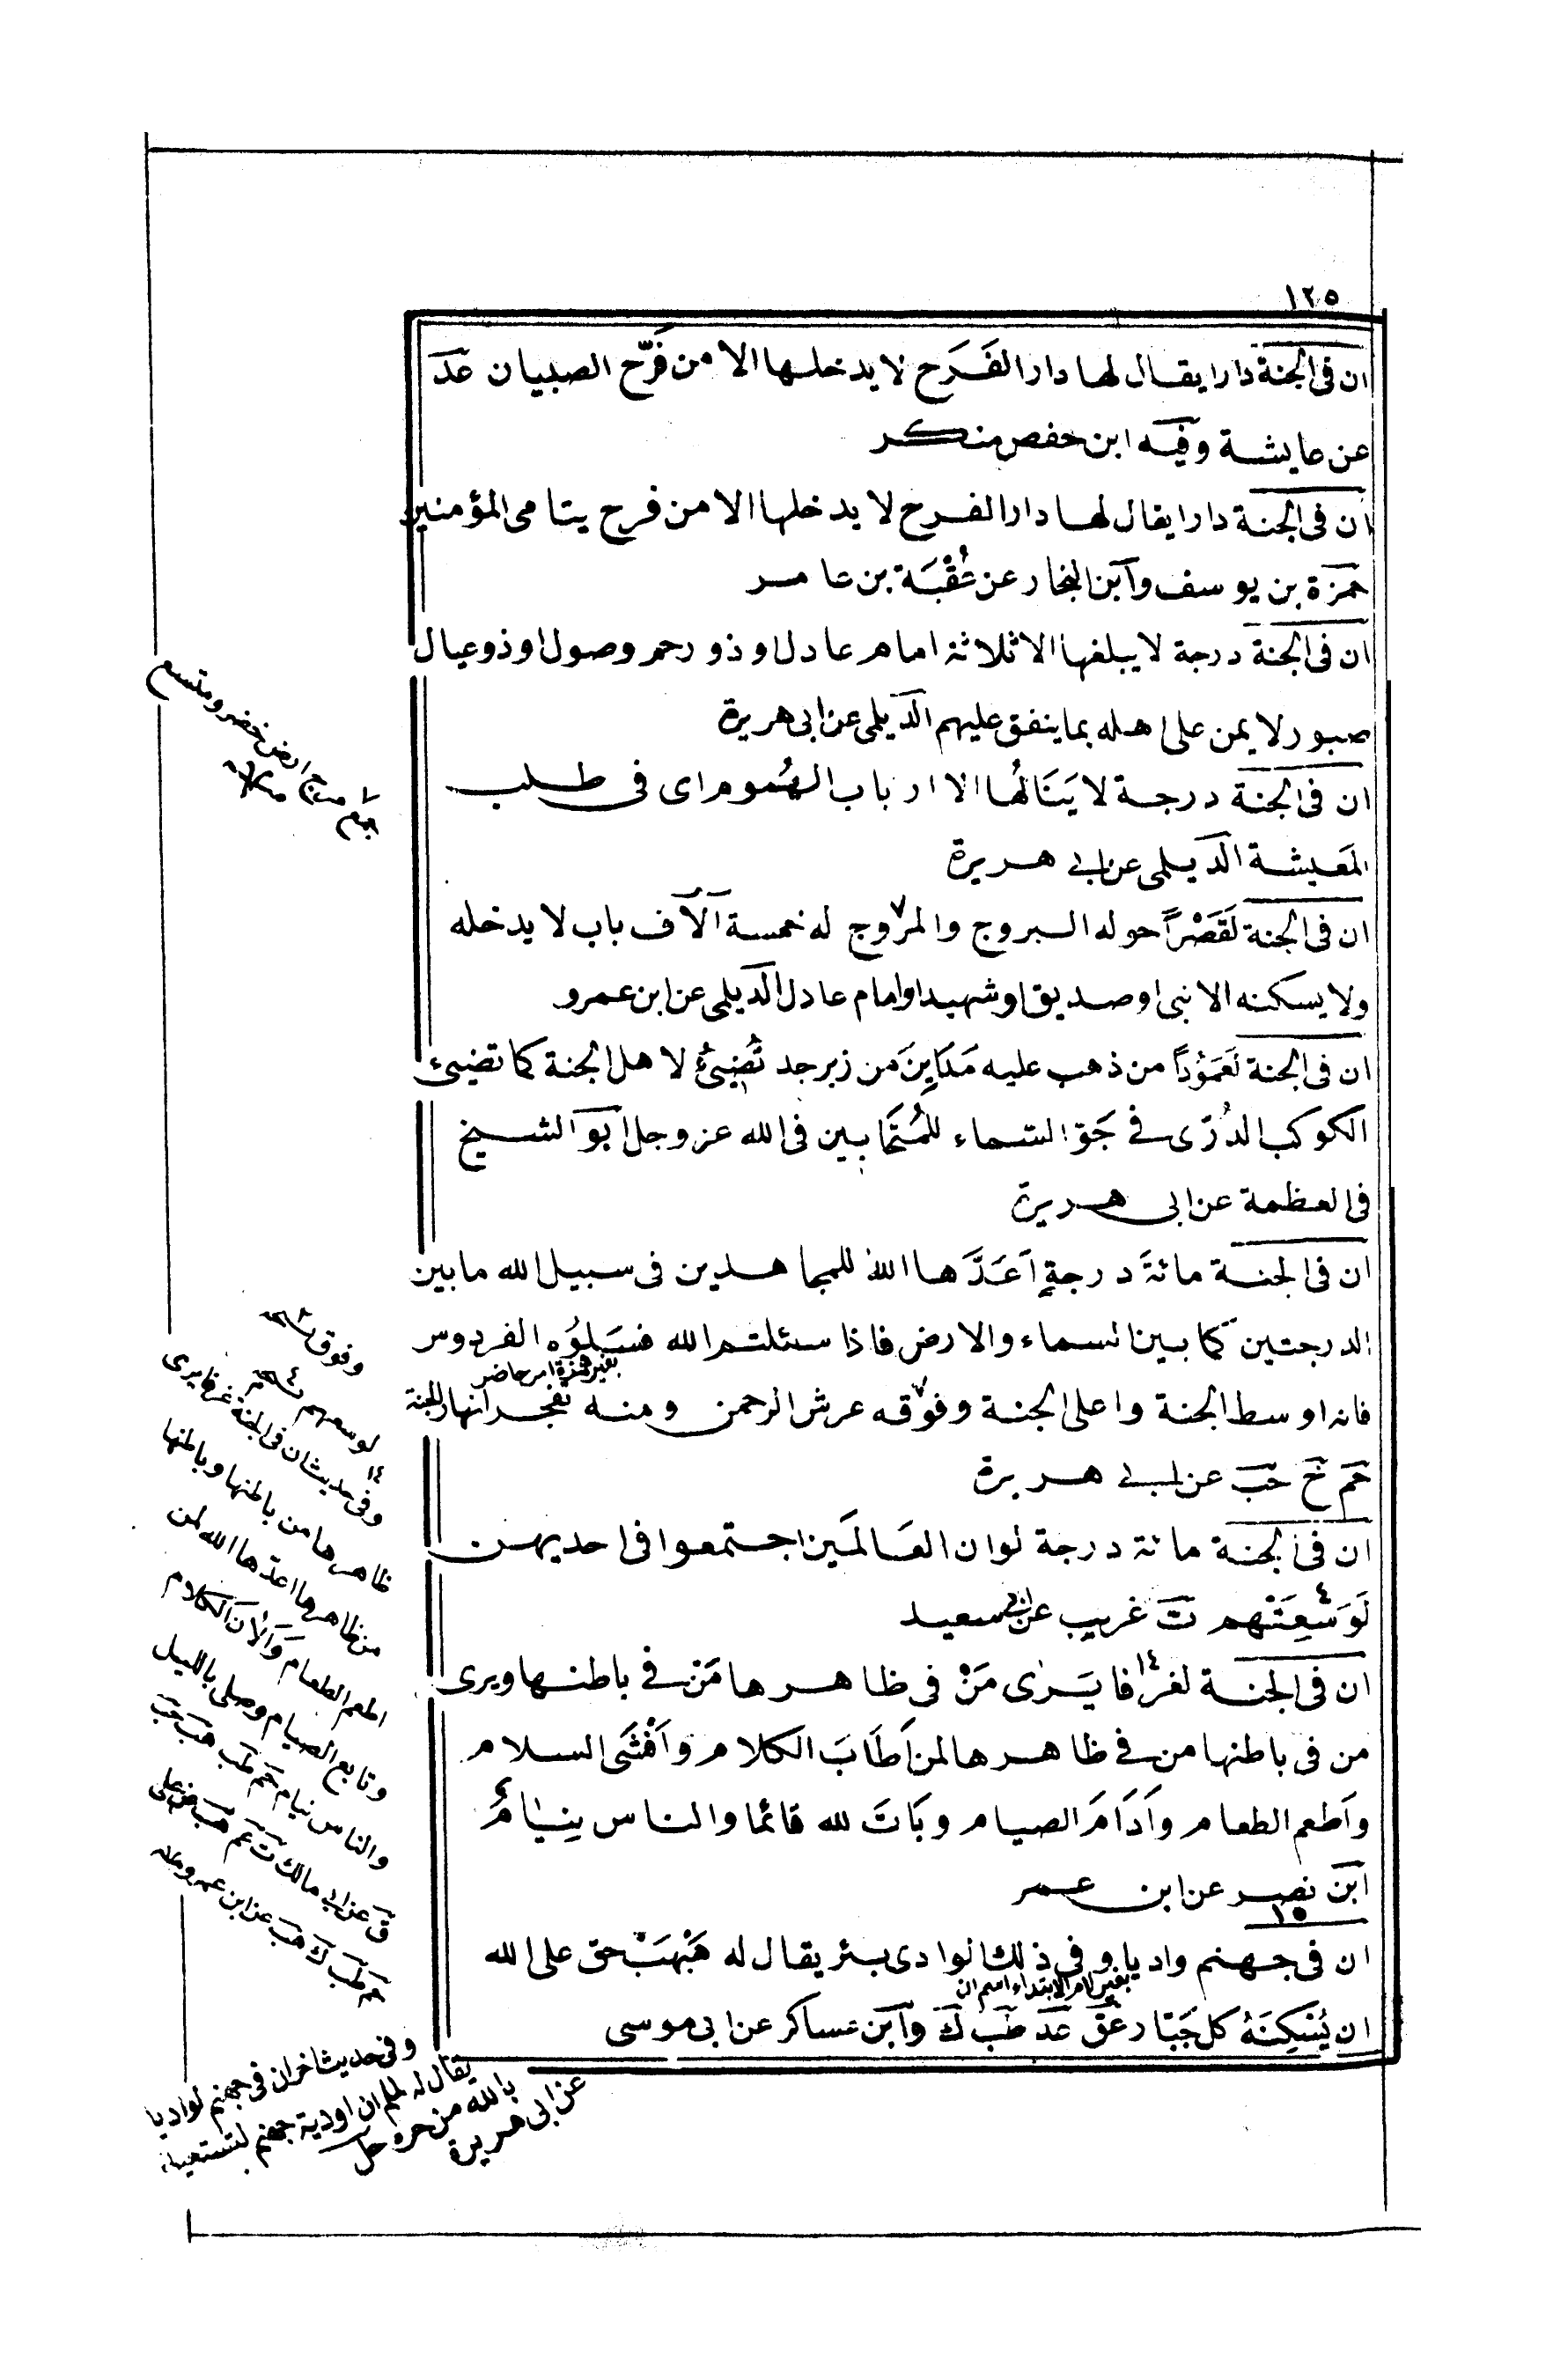 ١٢٥
ان فى الجنة دارا يقال لها دار الفَرَح لا يدخلها الا من فَرَّح الصبيان عد
عن عايشة وفيه ابن حفص منكر
ان فى الجنة دارا يقال لها دار الفرح لا يدخلها الا من فرح يتامى المؤمنين
حمزة بن يوسف وابن النجار عن عُقْبَة بن عامر
ان فى الجنة درجة لا يبلغها الا ثلاثة امام عادل او ذو رحم وصول او ذو عيال
صبور لا يمن على اهله بما ينفق عليهم الديلمى عن ابى هريرة
ان فى الجنة درجة لا يَنَالُها الا ارباب الهُموم اى فى طلب
المَعيشة الديلمى عن ابى هريرة
ان فى الجنة لَقَصْرًا حوله البروج والمروج له خمسة آلاف باب لا يدخله
ولا يسكنه الا نبى او صديق او شهيد او امام عادل الديلمى عن ابن عمرو
ان فى الجنة لَعَمُودًا من ذهب عليه مَدَايِنَ من زبرجد تُضِيئُ لاهل الجنة كما تضيئ
الكوكب الدُرّى فى جَوّ السماء للمُتَحَابين فى الله عز وجل ابو الشيخ
فى العظمة عن ابى هريرة
ان فى الجنة مائةَ درجةٍ اَعَدَّها اللهُ للمجاهدين فى سبيل الله ما بين
الدرجتين كما بين السماء والارض فاذا سئلتم الله فسَلوُه الفردوس
بغير همزة امر حاضر
فانه اوسط الجنة واعلى الجنة وفوقه عرش الرحمن ومنه تفجر انهار الجنة
حم خ حب عن ابى هريرة
ان فى الجنة مائة درجة لو ان العَالمَين اجتمعوا فى احديهن
لَوَسِعَتْهم ت غريب عن ابى سعيد
ان فى الجنة لغرفا يَرٰى مَنْ فى ظاهرها مَنْ فى باطنها ويرى
من فى باطنها من فى ظاهرها لمن اَطَابَ الكلام واَفْشَى السلام
واَطعم الطعام واَدَامَ الصيام وبَاتَ لله قائما والناس نِيَامٌ
ابن نصر عن ابن عمر
١٥
ان فى جهنم واديا وفى ذلك الوادى بئر يقال له هَبْهَبْ حق على الله
بغير لام الابتداء اسم ان
ان يُسْكِنَهُ كل جَبّار عق عد طب ك وابن عساكر عن ابى موسى
وفوق
لوسعهم
١٤
وفى حديث ان فى الجنة غرفا يرى
ظاهرها من باطنها وباطنها
من ظاهرها اعدها الله لمن
اطعم الطعام وَاَلانَ الكلام
وتابع الصيام وصلى بالليل
والناس نيام حم طب هب حب
ق عن ابى مالك ت عم هب ض على
طب ك هب عن ابن عمرو
وفى حديث اخر ان فى جهنم لواديا
يقال له لملم ان اودية جهنم لتستعيذ
بالله من حره حل
عن ابى هريرة